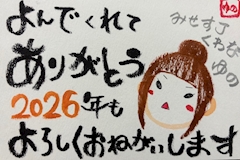 よんでくれて
ありがとう
2026年も
よろしくおねがいします
みせすJ
くわな
ゆの
ゆの